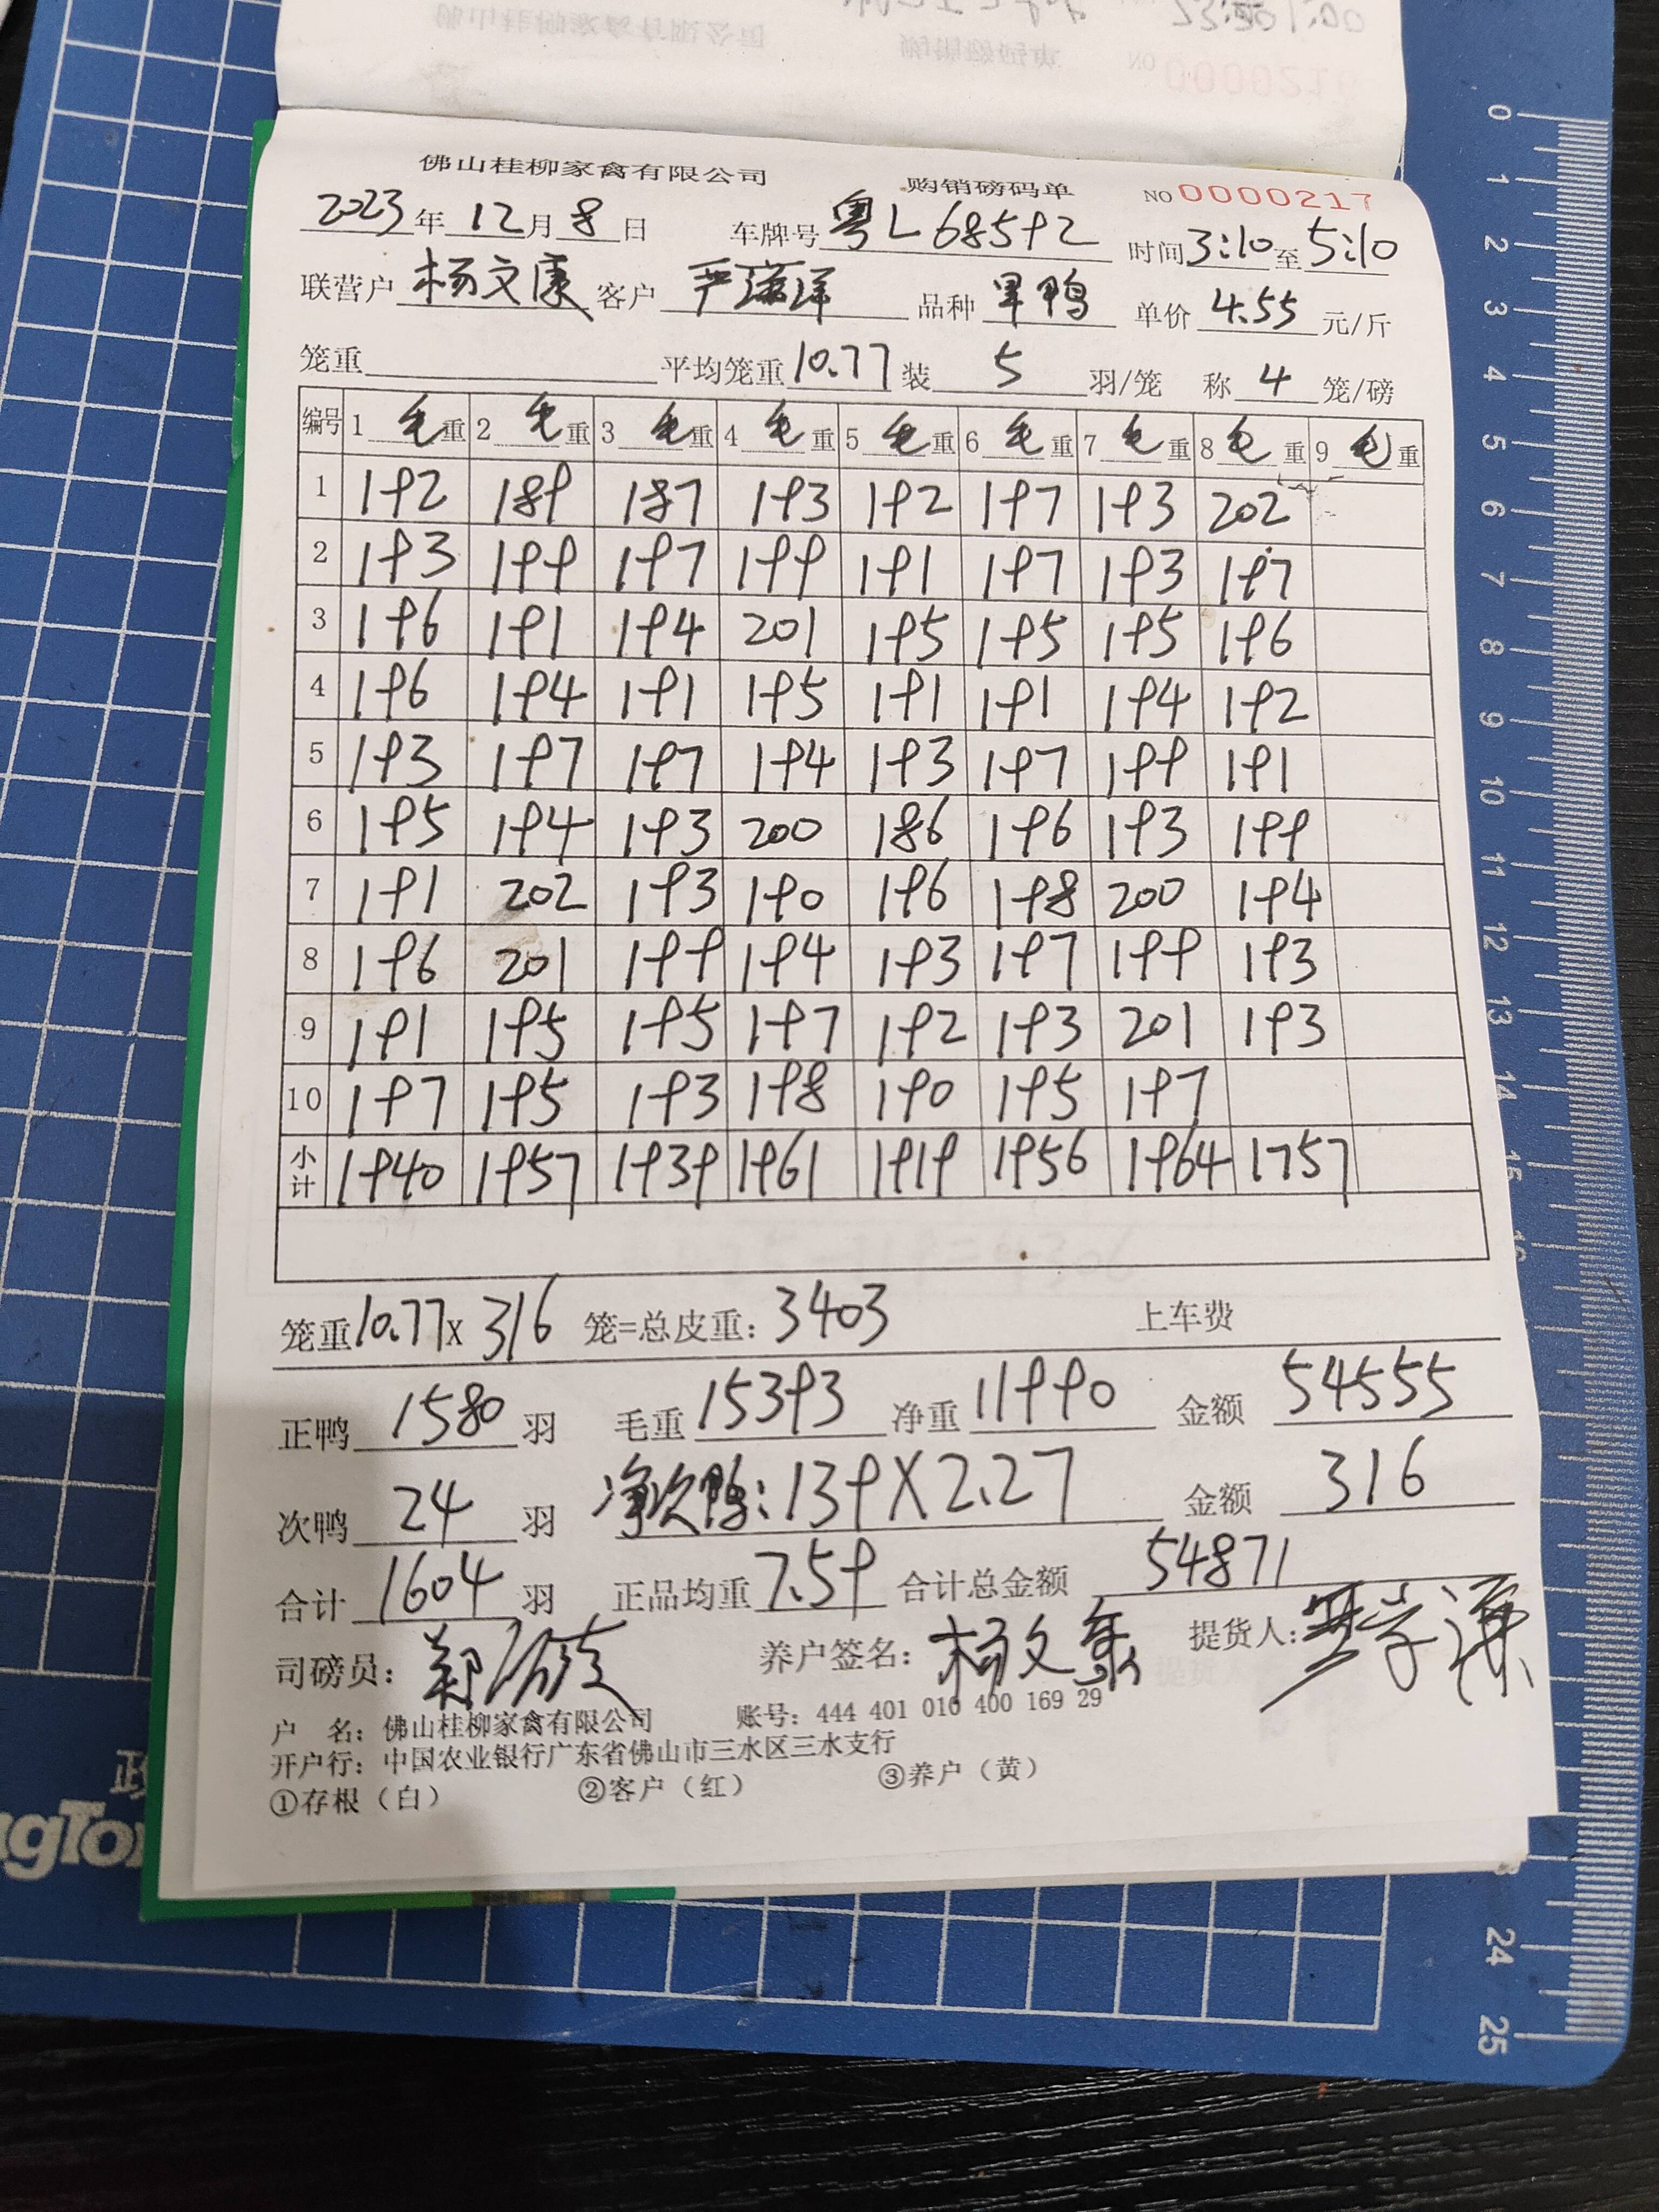 佛山桂柳家禽有限公司 购销磅码单 NO 0000217
2023年12月8日 车牌号 粤L68592 时间 3:10 至 5:10
联营户 杨文康 客户 品种 单价 4.55 元/斤
笼重 平均笼重 10.77 装 5 羽/笼 称 4 笼/磅
编号 1 毛重 2 毛重 3 毛重 4 毛重 5 毛重 6 毛重 7 毛重 8 毛重 9 毛重
1 192 189 187 193 192 197 193 202
2 193 199 197 199 191 197 193 197
3 196 191 194 201 195 195 195 196
4 196 194 191 195 191 191 194 192
5 193 197 197 194 193 197 199 191
6 195 194 193 200 186 196 193 199
7 191 202 193 190 196 198 200 194
8 196 201 199 194 193 197 199 193
9 191 195 195 197 192 193 201 193
10 197 195 193 198 190 195 197
小计 1940 1957 1939 1961 1919 1956 1964 1757
笼重 10.77 x 316 笼=总皮重: 3403 上车费
正鸭 1580 羽 毛重 15393 净重 11990 金额 54555
次鸭 24 羽 净次鸭: 139X2.27 金额 316
合计 1604 羽 正品均重 7.59 合计总金额 54871
司磅员: 养户签名: 杨文康 提货人:
户 名: 佛山桂柳家禽有限公司 账号: 444 401 010 400 169 29
开户行: 中国农业银行广东省佛山市三水区三水支行
①存根（白） ②客户（红） ③养户（黄）